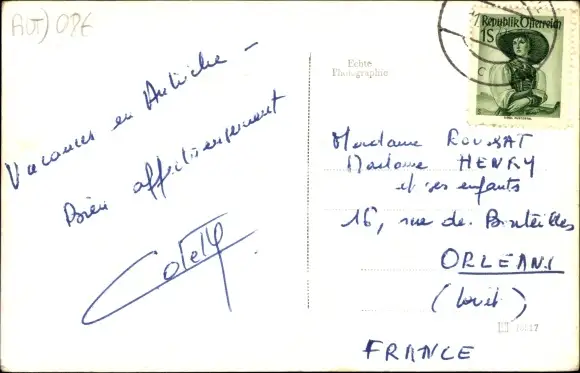 AUT) 08€
Vacances en Autriche -
Bien affectueusement
Echte
Photographie
Republik Österreich
1S
Madame ROUZAT
Madame HENRY
et ses enfants
16, rue de
ORLEANS
(Loiret)
FRANCE